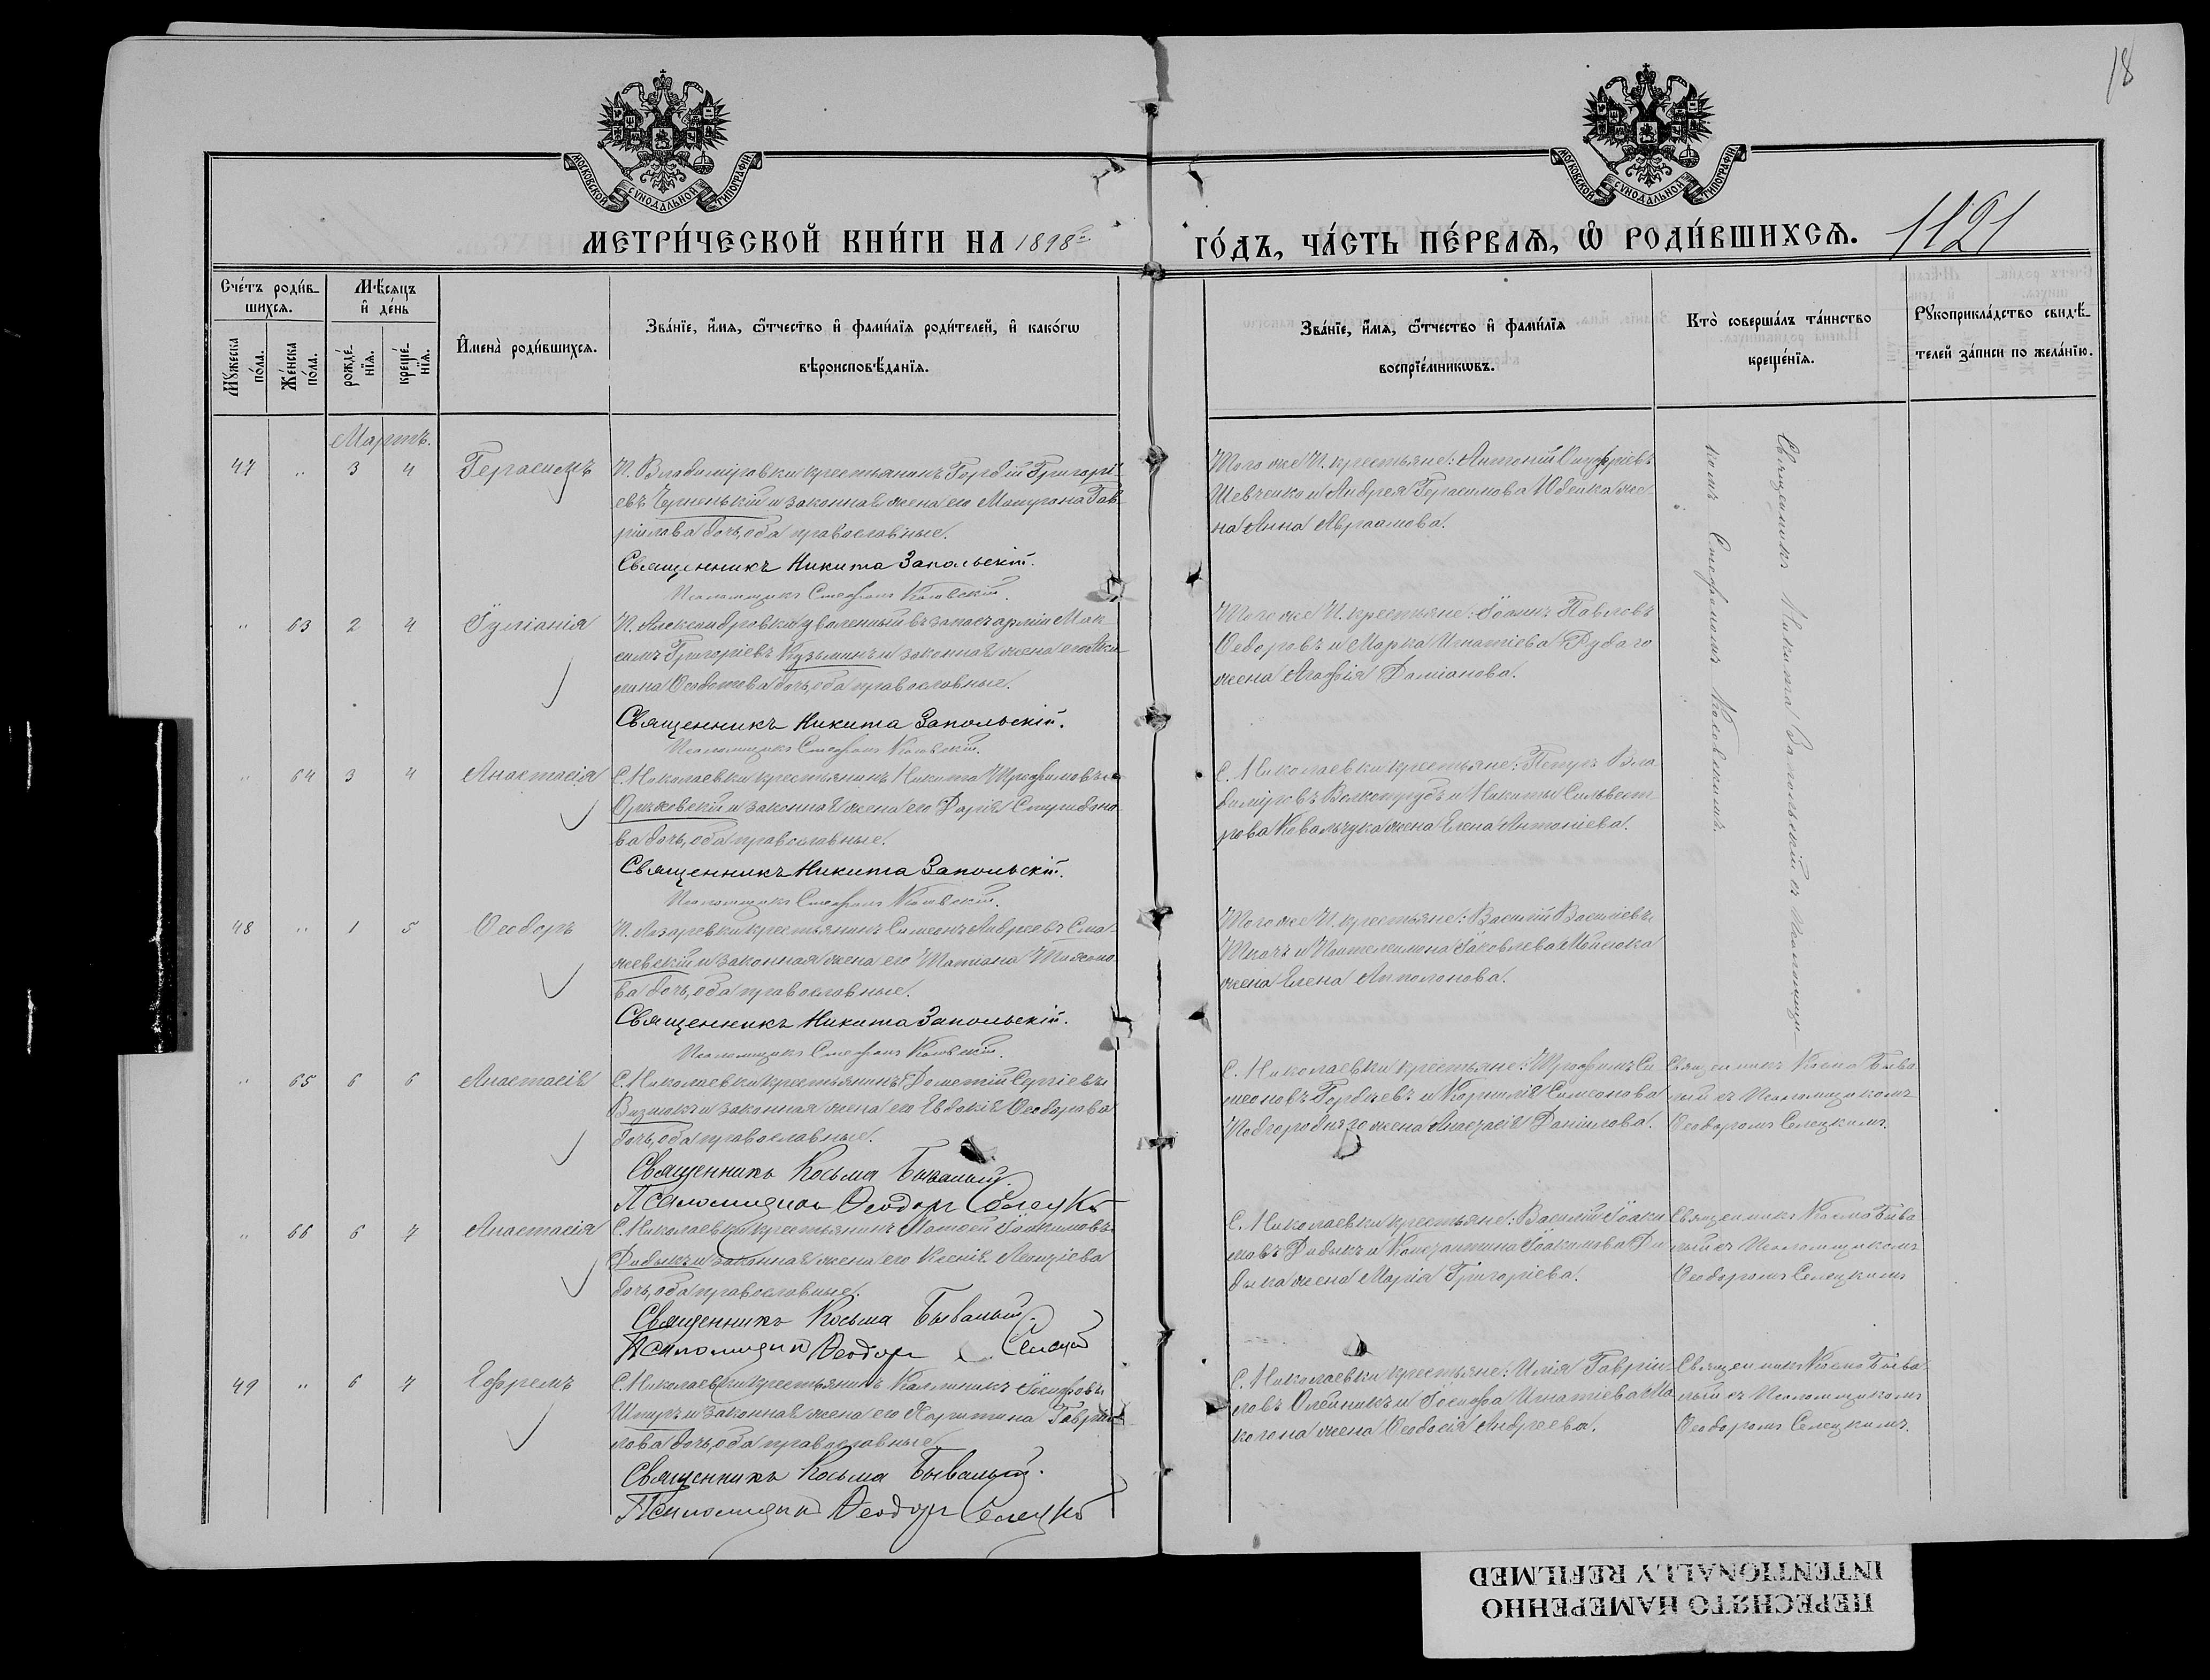 18
МОСКОВСКОЙ СѴНОДАЛЬНОЙ ТИПОГРАФІИ
МОСКОВСКОЙ СѴНОДАЛЬНОЙ ТИПОГРАФІИ
МЕТРИ́ЧЕСКОЙ КНИ́ГИ НА 1898 ГО́ДЪ, ЧА́СТЬ ПЕ́РВАѦ, Ѽ РОДИ́ВШИХСѦ. 1121
Сче́тъ роди́вшихсѧ.
Мꙋ́жеска по́ла.
Же́нска по́ла.
Мѣ́сѧцъ и҆ де́нь
рожде́нїѧ.
креще́нїѧ.
И҆мена̀ роди́вшихсѧ.
Зва́нїе, и҆́мѧ, ѻ҆́тчество и҆ фами́лїѧ роди́телей, и҆ како́гѡ
вѣроисповѣ́данїѧ.
Зва́нїе, и҆́мѧ, ѻ҆́тчество и҆ фами́лїѧ
воспрїе́мникѡвъ.
Кто̀ соверша́лъ та́инство
креще́нїѧ.
Рꙋкоприкла́дство свидѣ́телей за́писи по жела́нїю.
Мартъ.
47 " 3 4 Герасимъ
П. Владиміровки крестьянинъ Гордій Григорі-
евъ Черненькій и законная жена его Матрона Гав-
ріилова дочь, оба православные.
Священникъ Никита Запольскій.
Псаломщикъ Стефанъ
Того же П. крестьяне: Антоній Онуфріевъ
Шевченко и Андрея Герасимова Юденка же-
на Анна Авраамова.
Священникъ Никита Запольскій съ Псаломщи-
комъ Стефаномъ
" 63 2 4 Іуліанія
П. Александровки уволенный въ запасъ арміи Мак-
симъ Григоріевъ Кузьминъ и законная жена его Аки-
лина Ѳеодотова дочь, оба православные.
Священникъ Никита Запольскій.
Псаломщикъ Стефанъ
Того же П. крестьяне: Іоаннъ Павловъ
Ѳедоровъ и Марка Игнатіева Рудаго
жена Агафія Даміанова.
" 64 3 4 Анастасія
С. Николаевки крестьянинъ Никита Трофимовъ
Оржеховскій и законная жена его Дарія Спиридоно-
ва дочь, оба православные.
Священникъ Никита Запольскій.
Псаломщикъ Стефанъ
С. Николаевки крестьяне: Петръ Вла-
диміровъ и Никиты Сильвест-
рова Ковальчука жена Елена Антоніева.
48 " 1 5 Ѳеодоръ
П. Лазаревки крестьянинъ Симеонъ Андреевъ Сма-
жевскій и законная жена его Татіана Тимоѳео-
ва дочь, оба православные.
Священникъ Никита Запольскій.
Псаломщикъ Стефанъ
Того же П. крестьяне: Василій Василіевъ
Ткачъ и Пантелеимона Іаковлева
жена Елена Апполонова.
" 65 6 6 Анастасія
С. Николаевки крестьянинъ Дометій Сергіевъ
и законная жена его Евдокія Ѳеодорова
дочь, оба православные.
Священникъ Косьма Бывалый.
Псаломщикъ Ѳеодоръ Селецкій
С. Николаевки крестьяне: Трофимъ Си-
меоновъ Гордіевъ и Корнилія Симеонова
Подгородняго жена Анастасія Даніилова.
Священникъ Косма Быва-
лый съ Псаломщикомъ
Ѳеодоромъ Селецкимъ.
" 66 6 7 Анастасія
С. Николаевки крестьянинъ Матѳей Іоакимовъ
Дидыкъ и законная жена его Ксенія
дочь, оба православные.
Священникъ Косьма Бывалый.
Псаломщикъ Ѳеодоръ Селецкій
С. Николаевки крестьяне: Василій Іоаки-
мовъ Дидыкъ и Константина Іоакимова Ди-
дыка жена Марія Григоріева.
Священникъ Косма Быва-
лый съ Псаломщикомъ
Ѳеодоромъ Селецкимъ
49 " 6 7 Ефремъ
С. Николаевки крестьянинъ Каллиникъ Іосифовъ
и законная жена его Харитина Гаврі-
лова дочь, оба православные.
Священникъ Косьма Бывалый.
Псаломщикъ Ѳеодоръ Селецкій
С. Николаевки крестьяне: Илія Гавріи-
ловъ Олейникъ и Іосифа Игнатіева Ма-
когона жена Ѳеодосія Андреева.
Священникъ Косма Быва-
лый съ Псаломщикомъ
Ѳеодоромъ Селецкимъ.
ПЕРЕСНЯТО НАМЕРЕННО
INTENTIONALLY REFILMED